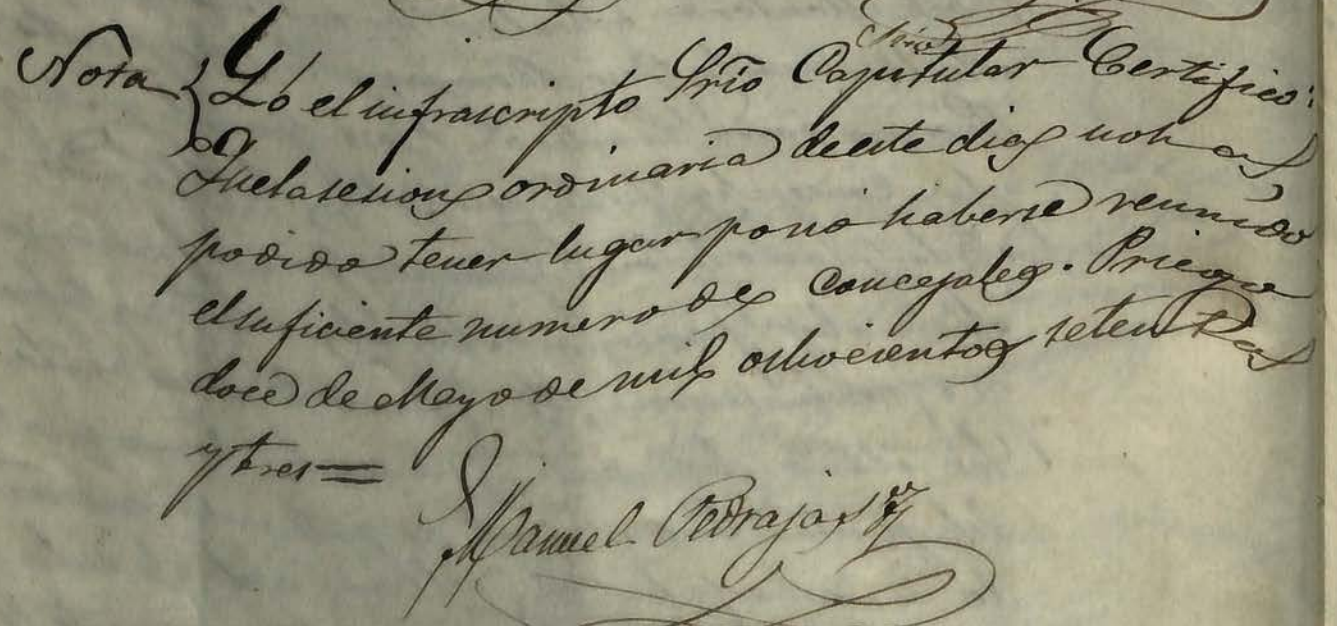 Nota { Yo el infrascripto Srio Capitular Certifico:
Que la sesion ordinaria de este dia no ha
podido tener lugar por no haberse reunido
el suficiente numero de concejales. Priego
doce de Mayo de mil ochocientos setenta
y tres=
Manuel Pedrajas